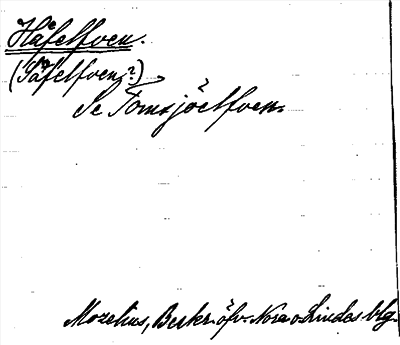 Håfelfven.
(Säfelfven?)
Se Tomsjöelfven.
Mozelius, Beskr. öfv. Nora o. Lindes blg.